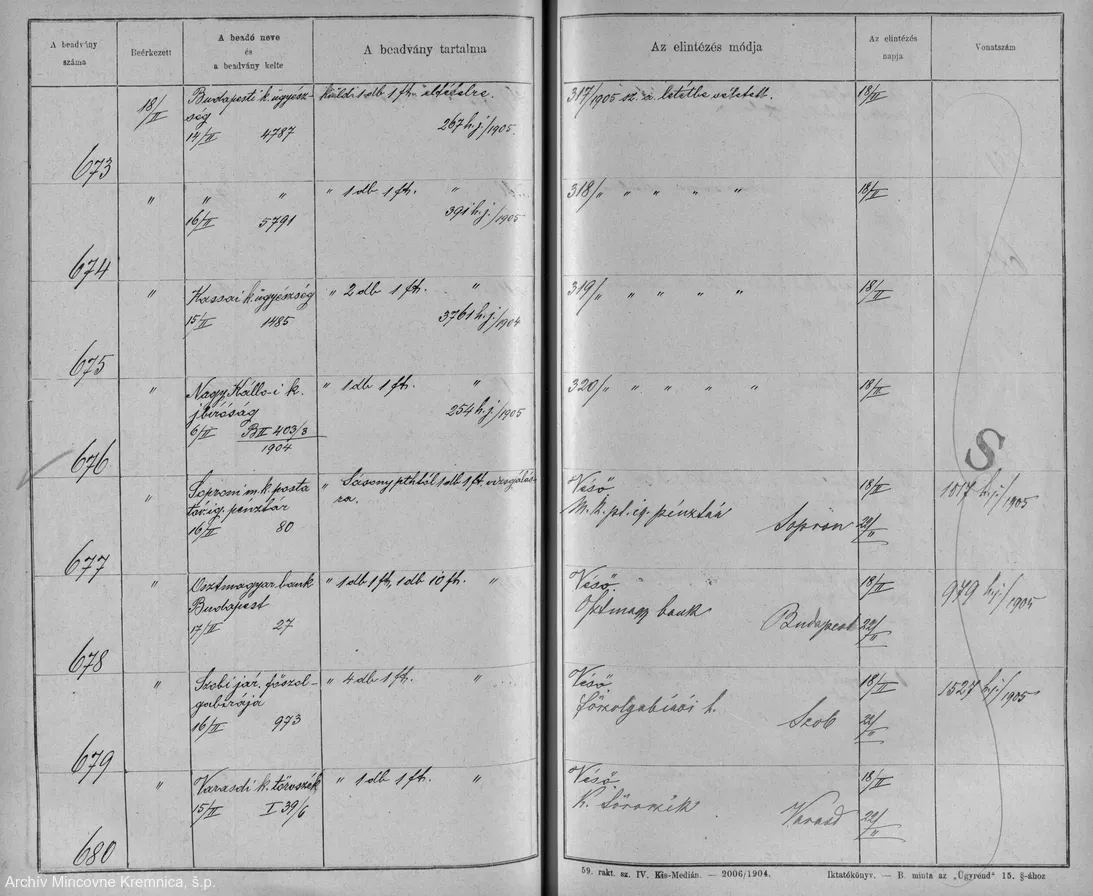 A beadvány
száma
Beérkezett
A beadó neve
és
a beadvány kelte
A beadvány tartalma
Az elintézés módja
Az elintézés
napja
Vonatszám
673
18/II
Budapesti k. ügyész-
ség
14/II 4787
küldi 1 db 1 ft.
267 h.j./1905.
317/1905 sz. a. letétbe vétetett.
18/II
674
" " "
16/II 5791
" 1 db 1 ft. "
391 h.j./1905
318/" " " " "
18/II
675
"
Kassai k. ügyészség
15/II 1485
" 2 db 1 ft. "
3761 h.j./1904
319/" " " " "
18/II
676
"
Nagy Kálló-i k.
jbíróság
6/II B II 403/3
1904
" 1 db 1 ft. "
254 h.j./1905
320/" " " " "
18/II
677
"
Soproni m. k. posta
távig. pénztár
16/II 80
" Sásony pthtól 1 db 1 ft. vizsgálás-
ra.
Véső
M. k. pt. ig. pénztár
Sopron
18/II
22/II
1017 h.j./1905
S
678
"
Osztmagyar bank
Budapest
17/II 27
" 1 db 1 ft, 1 db 10 ft. "
Véső
Osztmagy bank
Budapest
18/II
22/II
979 h.j./1905
679
"
Szobi jár. főszol-
gabirája
16/II 973
" 4 db 1 ft. "
Véső
főszolgabírói h.
Szob
18/II
22/II
1527 h.j./1905
680
"
Varasdi k. törvszék
15/II I 39/6
" 1 db 1 ft. "
Véső
K. törvszék
Varasd
18/II
22/II
59. rakt. sz. IV. Kis-Medián. — 2006/1904.
Iktatókönyv. — B. minta az „Ügyrend" 15. §-ához
Archív Mincovne Kremnica, š.p.